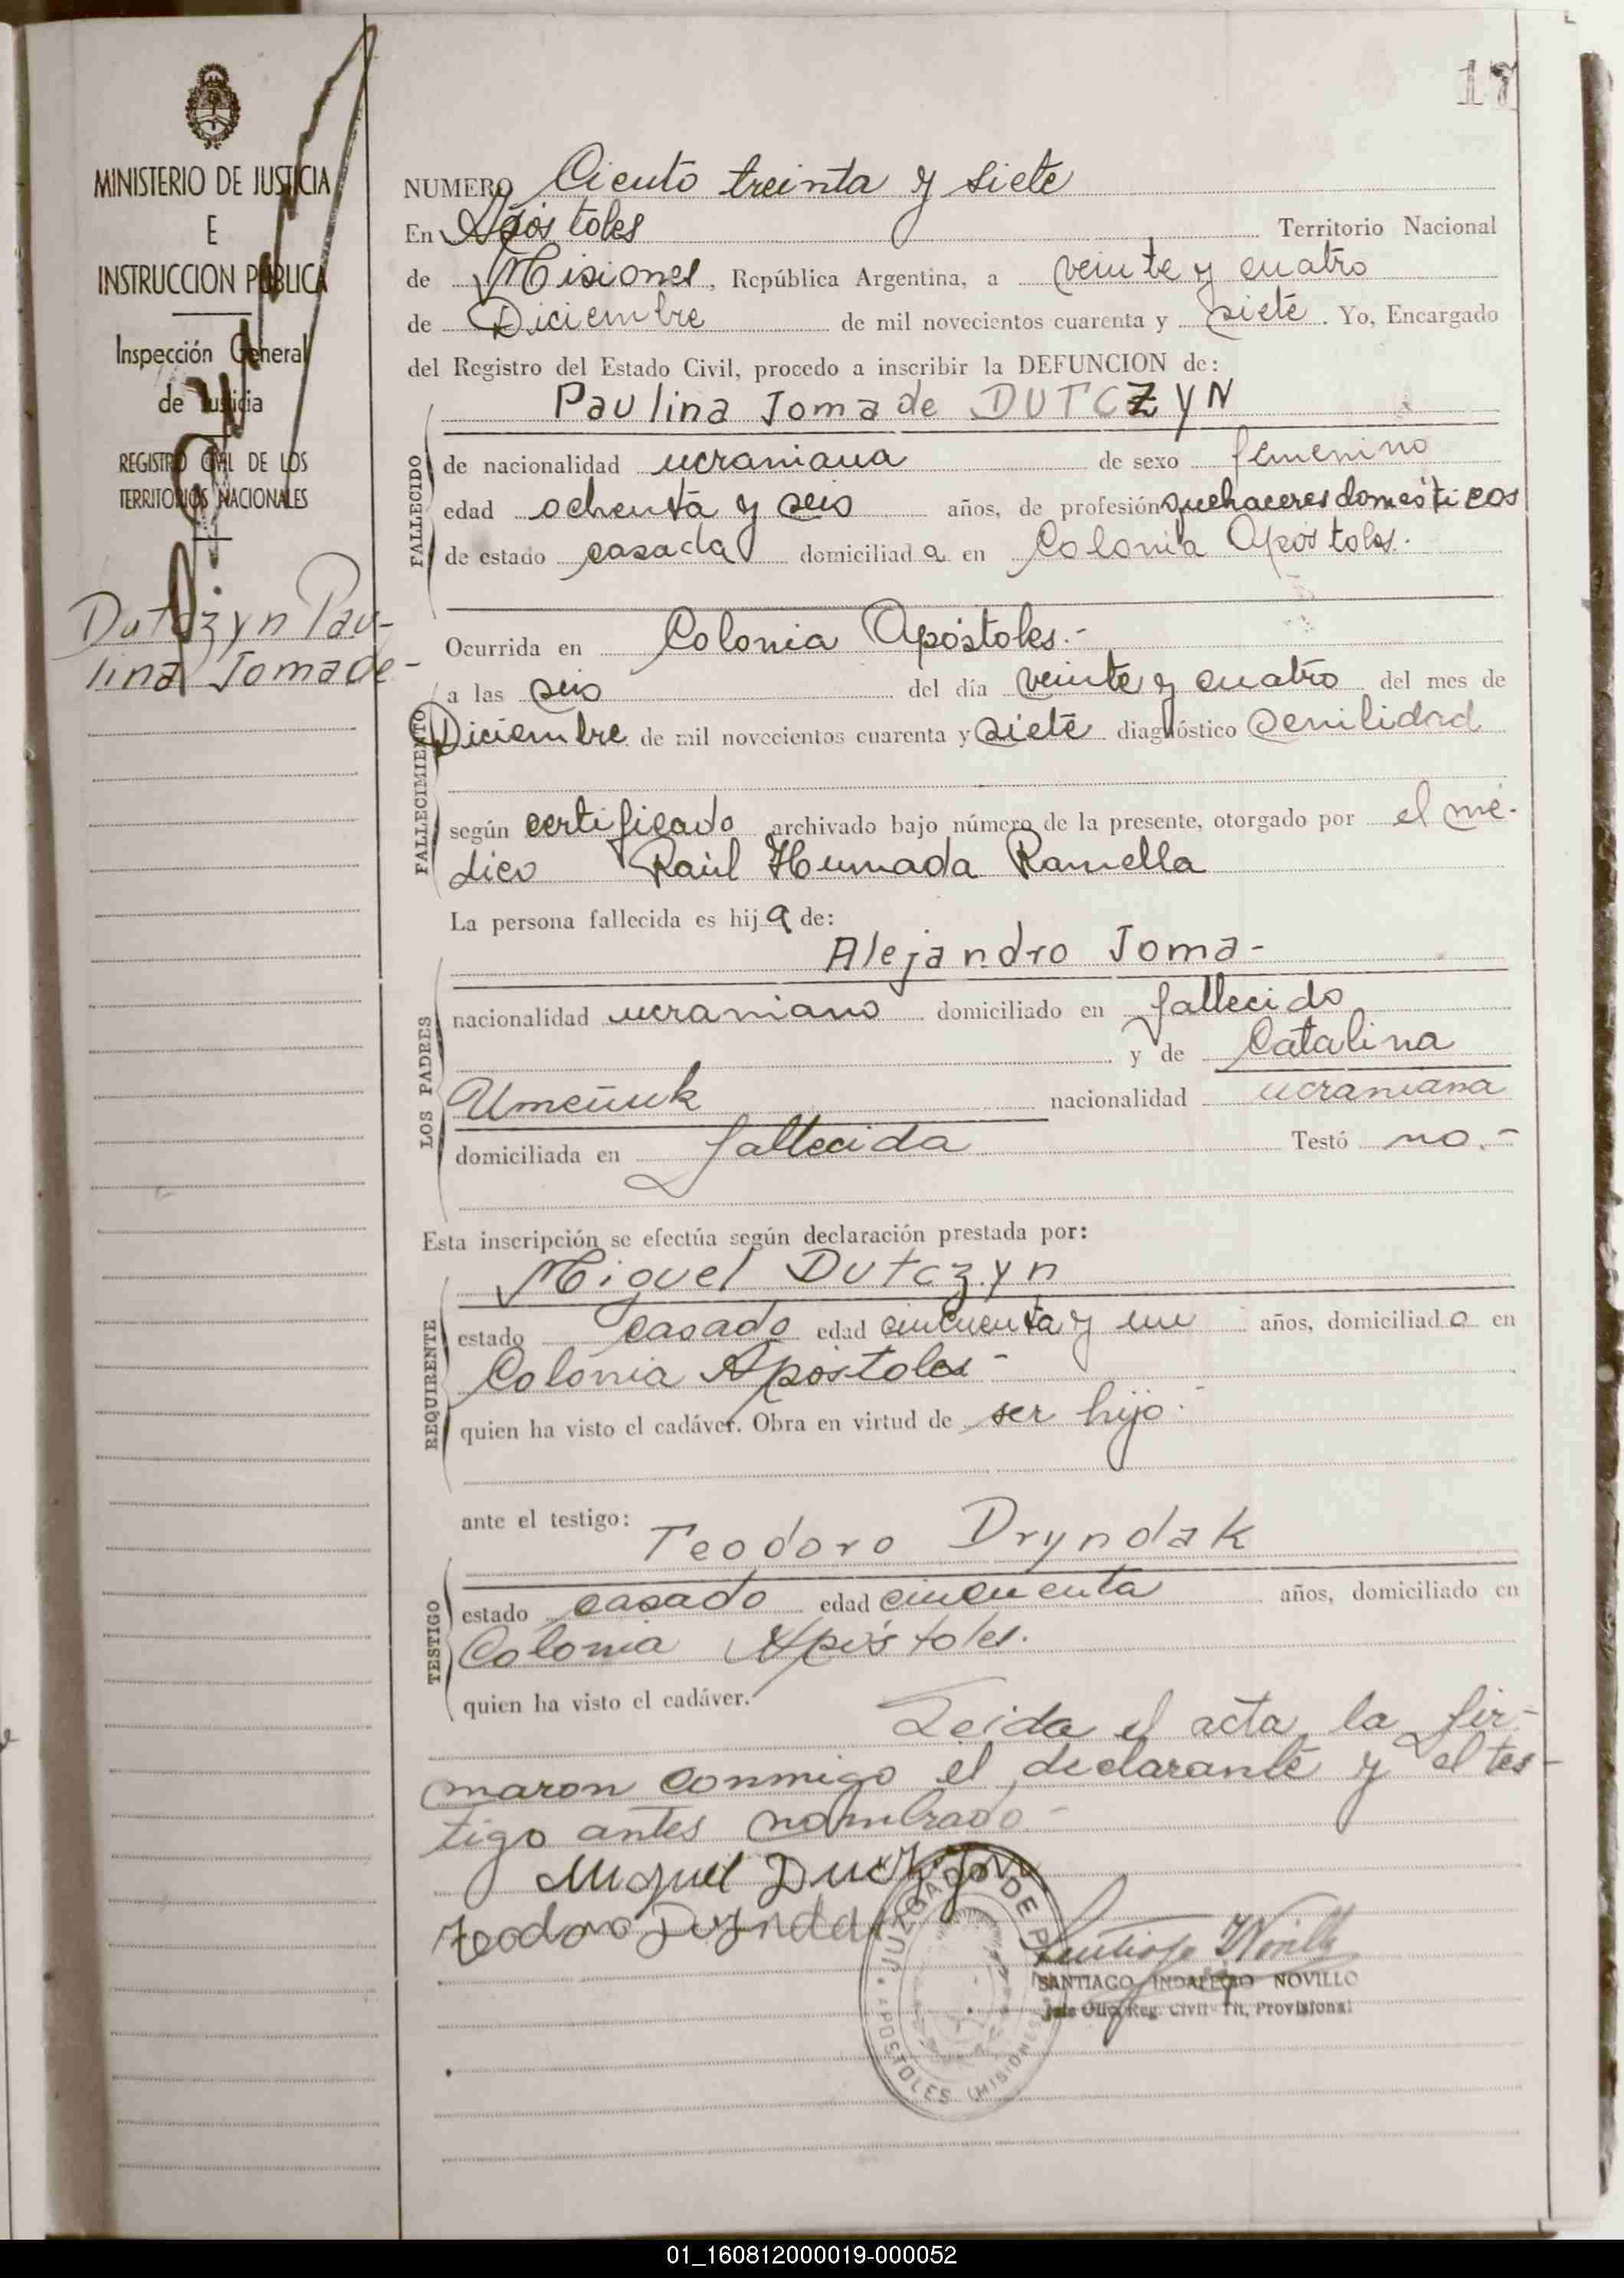 17
MINISTERIO DE JUSTICIA
E
INSTRUCCION PUBLICA
Inspección General
de Justicia
REGISTRO CIVIL DE LOS
TERRITORIOS NACIONALES
Dutczyn Pau-
lina Joma de-
NUMERO Ciento treinta y siete
En Apóstoles Territorio Nacional
de Misiones, República Argentina, a veinte y cuatro
de Diciembre de mil novecientos cuarenta y siete. Yo, Encargado
del Registro del Estado Civil, procedo a inscribir la DEFUNCION de:
Paulina Joma de DUTCZYN
FALLECIDO
de nacionalidad ucraniana de sexo femenino
edad ochenta y seis años, de profesión quehaceres domésticos
de estado casada domiciliada en Colonia Apóstoles.
FALLECIMIENTO
Ocurrida en Colonia Apóstoles.-
a las seis del día veinte y cuatro del mes de
Diciembre de mil novecientos cuarenta y siete diagnóstico senilidad
según certificado archivado bajo número de la presente, otorgado por el mé-
dico Raúl Humada Ramella
La persona fallecida es hija de:
LOS PADRES
Alejandro Joma-
nacionalidad ucraniano domiciliado en fallecido
y de Catalina
nacionalidad ucraniana
domiciliada en fallecida Testó no.-
Esta inscripción se efectúa según declaración prestada por:
REQUIRENTE
Miguel Dutczyn
estado casado edad cincuenta y un años, domiciliado en
Colonia Apóstoles-
quien ha visto el cadáver. Obra en virtud de ser hijo.-
ante el testigo:
TESTIGO
Teodoro Dryndak
estado casado edad cincuenta años, domiciliado en
Colonia Apóstoles.
quien ha visto el cadáver.
Leida el acta, la fir-
maron conmigo el declarante y el tes-
tigo antes nombrado-
Miguel
Teodoro
JUZGADO DE
APOSTOLES (MISIONES)
SANTIAGO INDALECIO NOVILLO
Jefe Ofic. Reg. Civil Tit. Provisional
01_160812000019-000052